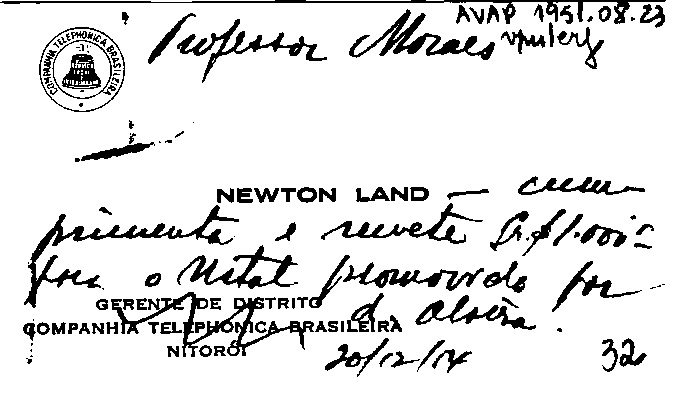 AVAP 1951.08.23
COMPANHIA TELEPHONICA BRASILEIRA
Professor Moraes
NEWTON LAND — cum-
primenta e remete Cr.$1.000,-
para o Natal promovido por
d. Alzira.
GERENTE DE DISTRITO
COMPANHIA TELEPHONICA BRASILEIRA
NITORÓI
20/12/54
32